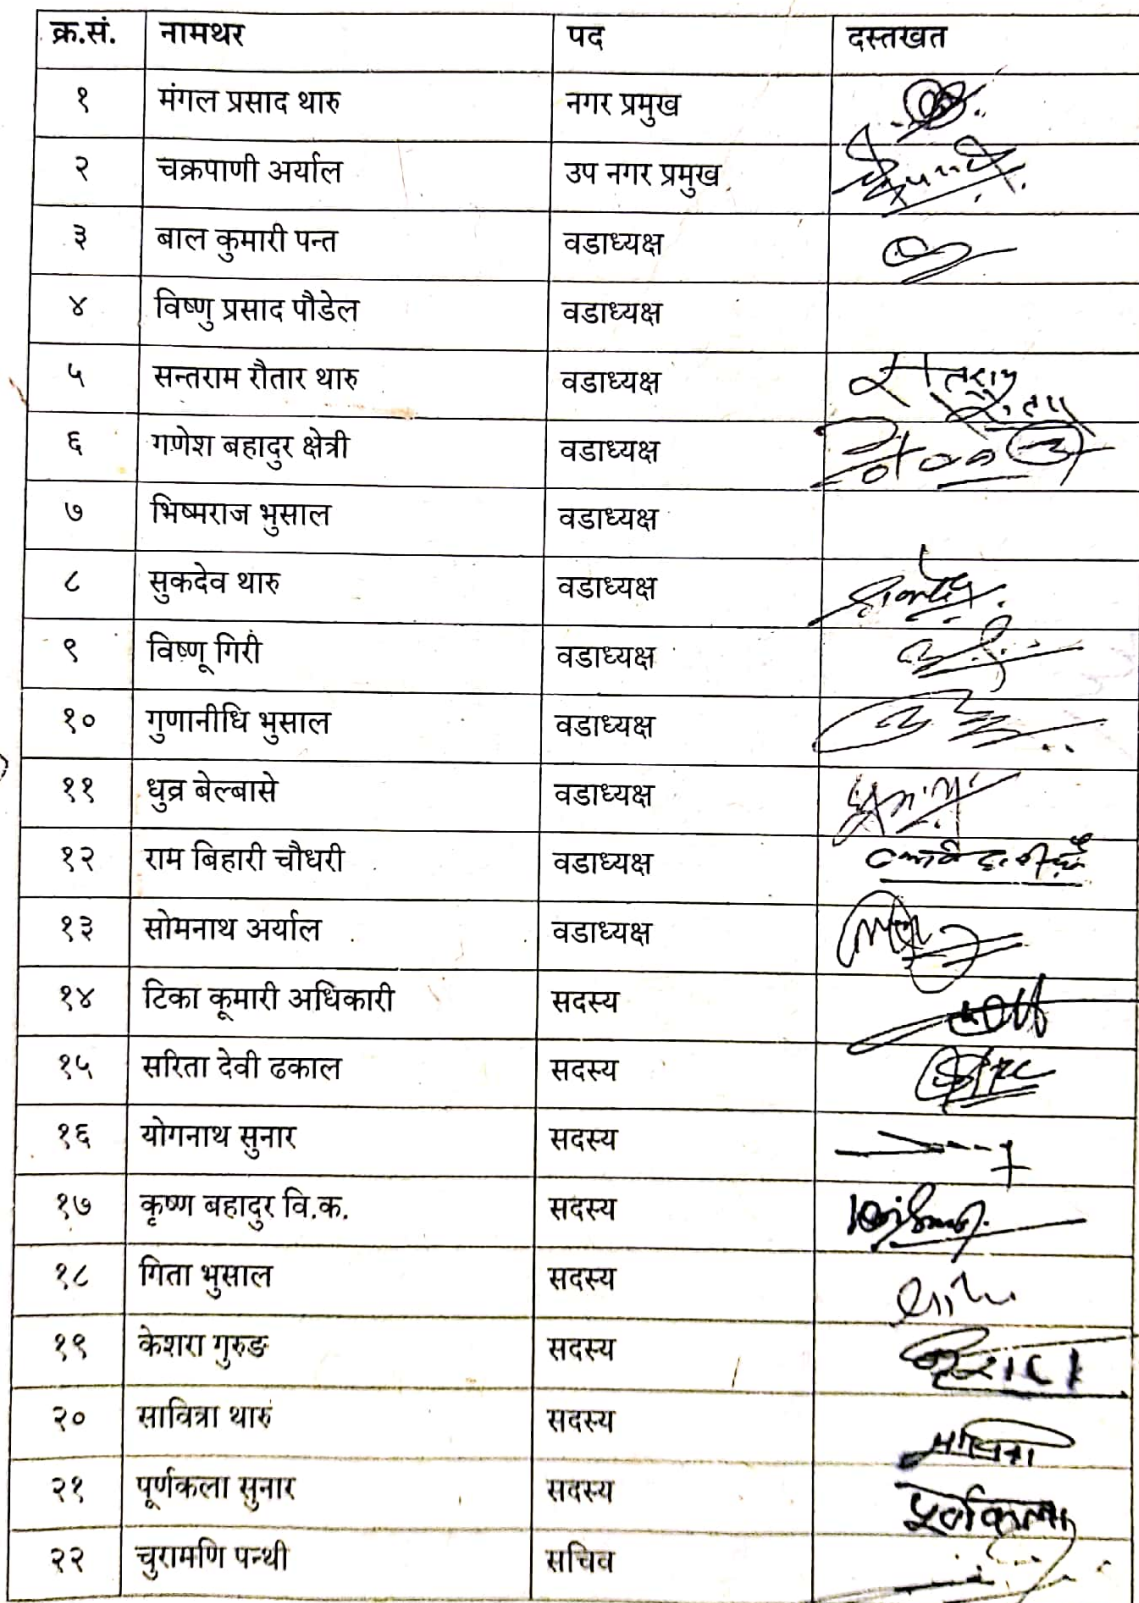 क्र.सं. नामथर पद दस्तखत
१ मंगल प्रसाद थारु नगर प्रमुख
२ चक्रपाणी अर्याल उप नगर प्रमुख
३ बाल कुमारी पन्त वडाध्यक्ष
४ विष्णु प्रसाद पौडेल वडाध्यक्ष
५ सन्तराम रौतार थारु वडाध्यक्ष
६ गणेश बहादुर क्षेत्री वडाध्यक्ष
७ भिष्मराज भुसाल वडाध्यक्ष
८ सुकदेव थारु वडाध्यक्ष
९ विष्णू गिरी वडाध्यक्ष
१० गुणानीधि भुसाल वडाध्यक्ष
११ धुव्र बेल्बासे वडाध्यक्ष
१२ राम बिहारी चौधरी वडाध्यक्ष
१३ सोमनाथ अर्याल वडाध्यक्ष
१४ टिका कूमारी अधिकारी सदस्य
१५ सरिता देवी ढकाल सदस्य
१६ योगनाथ सुनार सदस्य
१७ कृष्ण बहादुर वि.क. सदस्य
१८ गिता भुसाल सदस्य
१९ केशरा गुरुङ सदस्य
२० सावित्रा थारु सदस्य
२१ पूर्णकला सुनार सदस्य पूर्णकला
२२ चुरामणि पन्थी सचिव